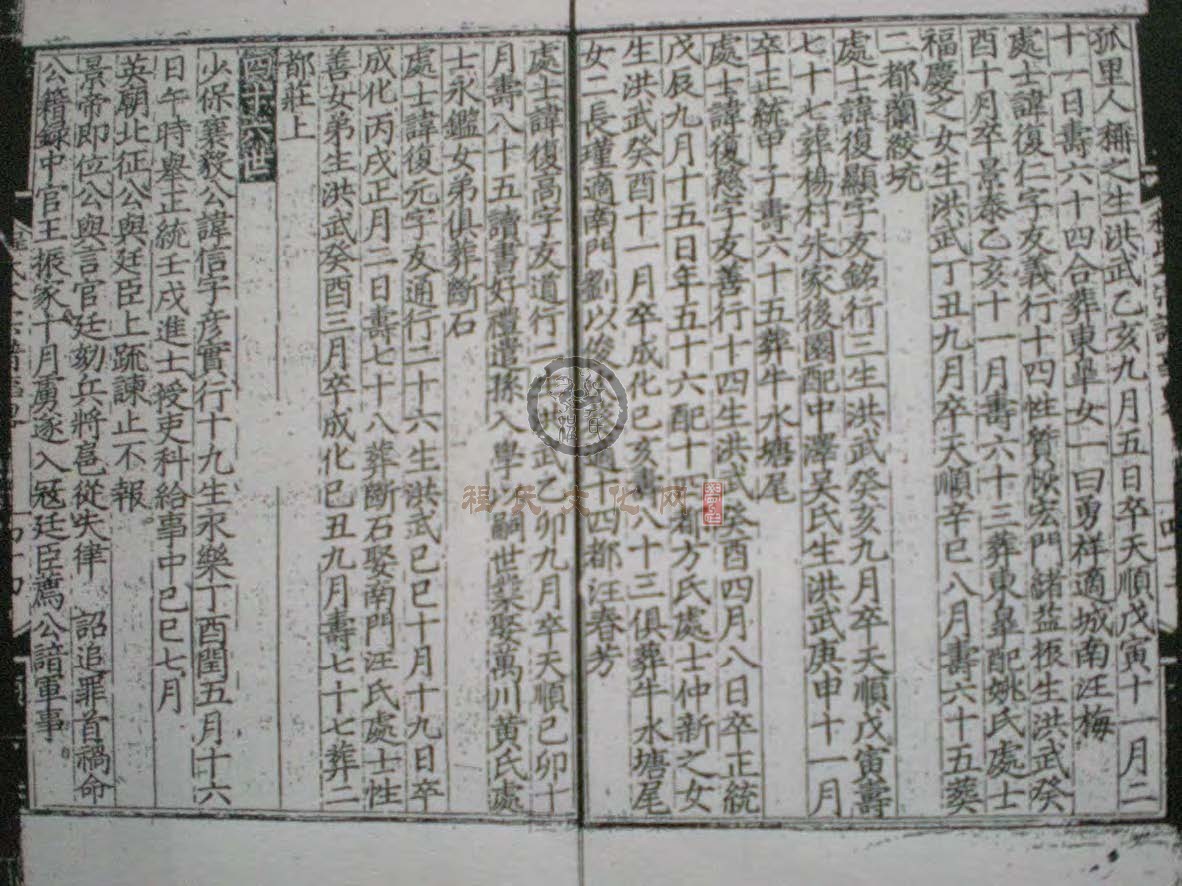 孤里人稱之生洪武乙亥九月五日卒天順戊寅十一月二
十一日壽六十四合葬東皐女一曰勇祥適城南汪梅
處士諱復仁字友義行十四性贊恢宏門緒益振生洪武癸
酉十月卒景泰乙亥十一月壽六十三葬東皐配姚氏處士
福慶之女生洪武丁丑九月卒天順辛巳八月壽六十五葬
二都蘭㘭坑
處士諱復顯字友銘行三生洪武癸亥九月卒天順戊寅壽
七十七葬楊村朱家後園配中澤吴氏生洪武庚申十一月
卒正統甲子壽六十五葬牛水塘尾
處士諱復愻字友善行十四生洪武癸酉四月八日卒正統
戊辰九月十五日年五十六配十都方氏處士仲新之女
生洪武癸酉十一月卒成化己亥壽八十三俱葬牛水塘尾
女二長瑾適南門劉以 適十四都汪春芳
處士諱復高字友道行二 洪武乙卯九月卒天順己卯十
月壽八十五讀書好禮遣孫入學以嗣世業娶萬川黄氏處
士永鑑女弟俱葬斷石
處士諱復元字友通行二十六生洪武己巳十月十九日卒
成化丙戌正月二日壽七十八葬斷石娶南門汪氏處士性
善女弟生洪武癸酉三月卒成化己丑九月壽七十七葬二
都莊上
四十六世
少保襄毅公諱信字彦實行十九生永樂丁酉閏五月十六
日午時舉正統壬戌進士授吏科給事中己巳七月
英朝北征公與廷臣上䟽諫止不報
景帝即位公與言官廷劾兵將扈從失律 詔追罪首禍命
公籍録中官王振家十月虜遂入冦廷臣薦公諳軍事
程氏文化网